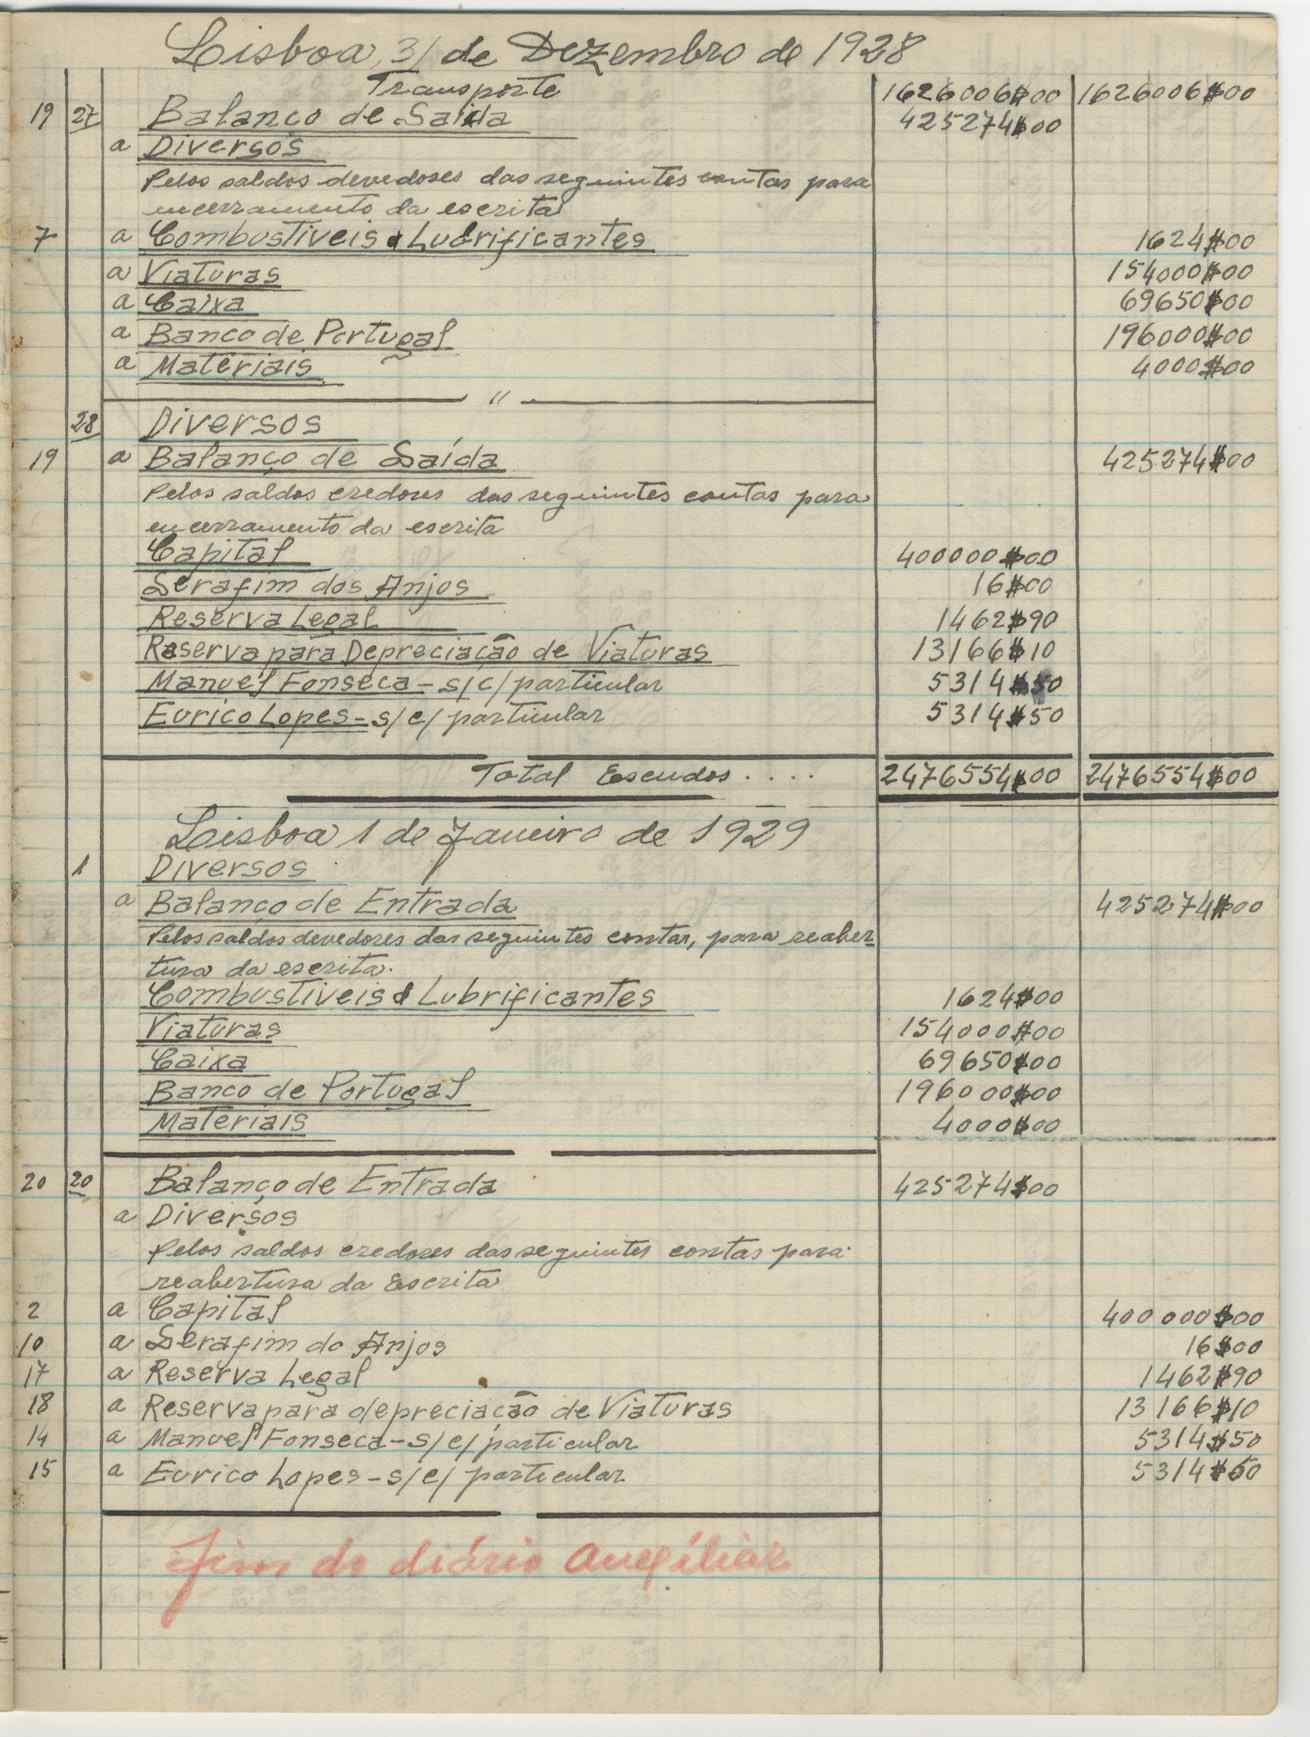 Lisboa, 31 de Dezembro de 1928
Transporte 1626006$00 1626006$00
19 27 Balanço de Saída 425274$00
a Diversos
Pelos saldos devedores das seguintes contas para
encerramento da escrita
7 a Combustíveis & Lubrificantes 1624$00
a Viaturas 154000$00
a Caixa 69650$00
a Banco de Portugal 196000$00
a Materiais 4000$00
"
28 Diversos
19 a Balanço de Saída 425274$00
Pelos saldos credores das seguintes contas para
encerramento da escrita
Capital 400000$00
Serafim dos Anjos 16$00
Reserva Legal 1462$90
Reserva para Depreciação de Viaturas 13166$10
Manuel Fonseca - s/c/ particular 5314$50
Eurico Lopes - s/c/ particular 5314$50
Total Escudos.... 2476554$00 2476554$00
Lisboa 1 de Janeiro de 1929
1 Diversos
a Balanço de Entrada 425274$00
Pelos saldos devedores das seguintes contas, para reaber
tura da escrita.
Combustíveis & Lubrificantes 1624$00
Viaturas 154000$00
Caixa 69650$00
Banco de Portugal 196000$00
Materiais 4000$00
20 20 Balanço de Entrada 425274$00
a Diversos
Pelos saldos credores das seguintes contas para
reabertura da Escrita
2 a Capital 400000$00
10 a Serafim do Anjos 16$00
17 a Reserva Legal 1462$90
18 a Reserva para depreciação de Viaturas 13166$10
14 a Manuel Fonseca - s/c/ particular 5314$50
15 a Eurico Lopes - s/c/ particular 5314$50
Fim do diário Auxíliar